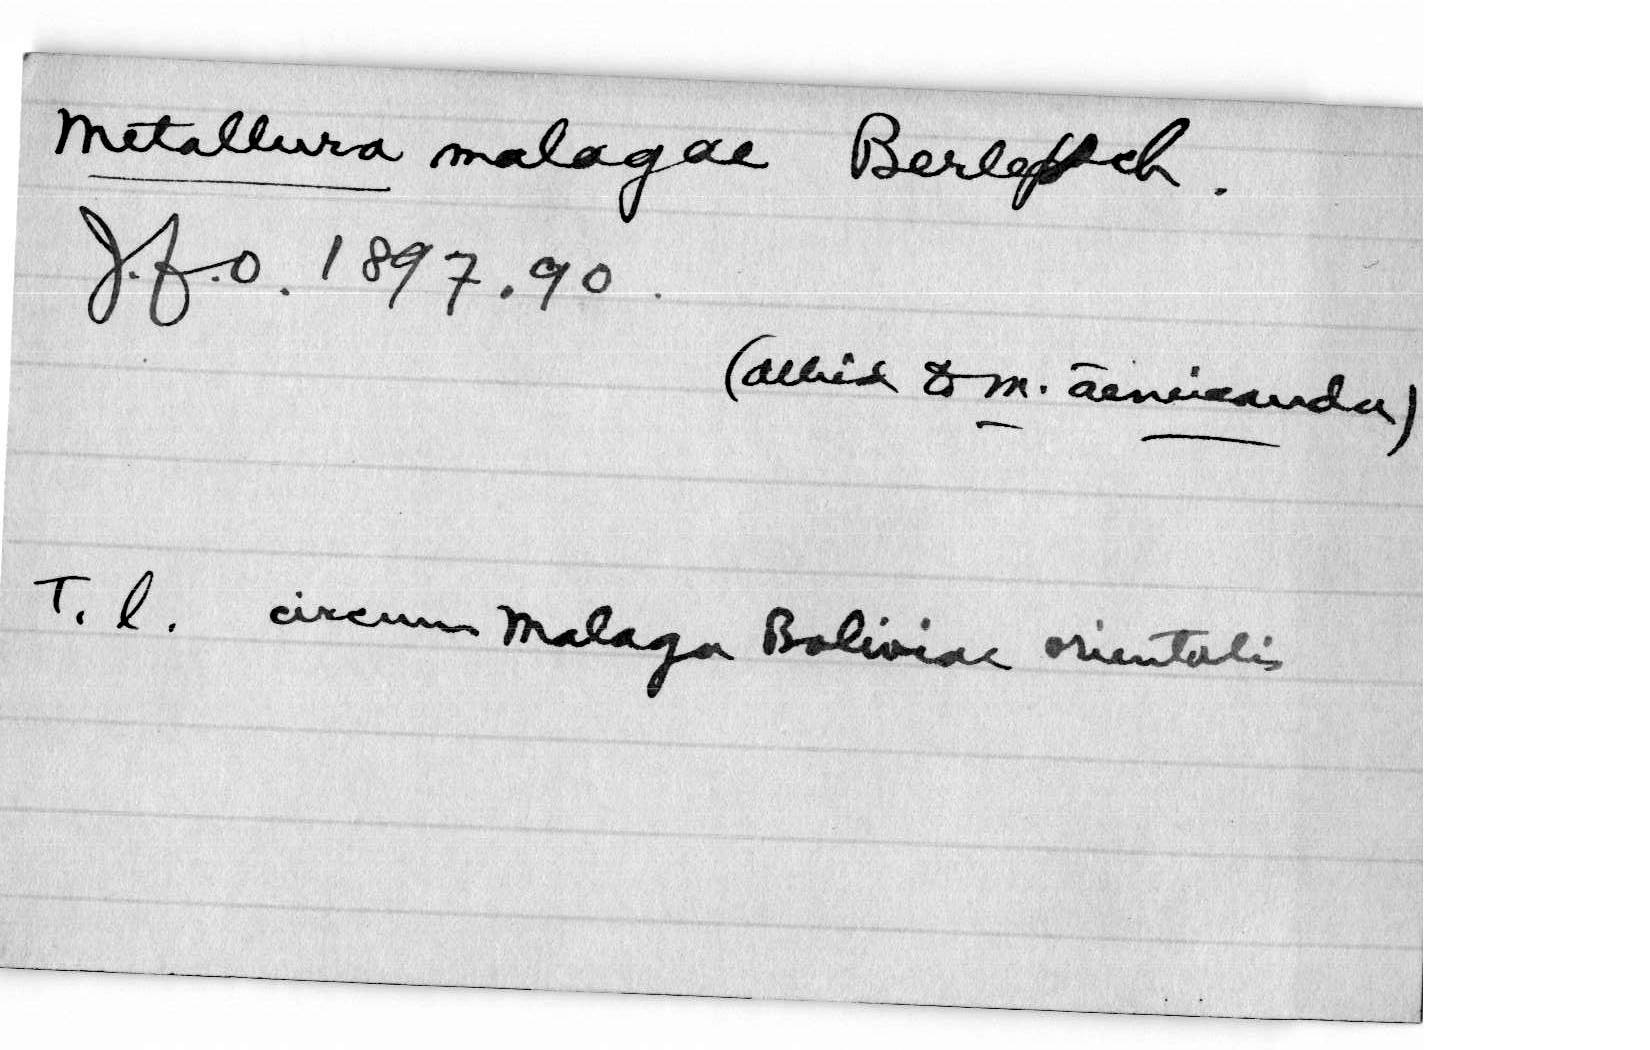 Metallura malagae Berlepsch.
J.f.O. 1897.90.
(allied to M. aeneicauda)
T. l. circum Malaga Boliviae orientalis